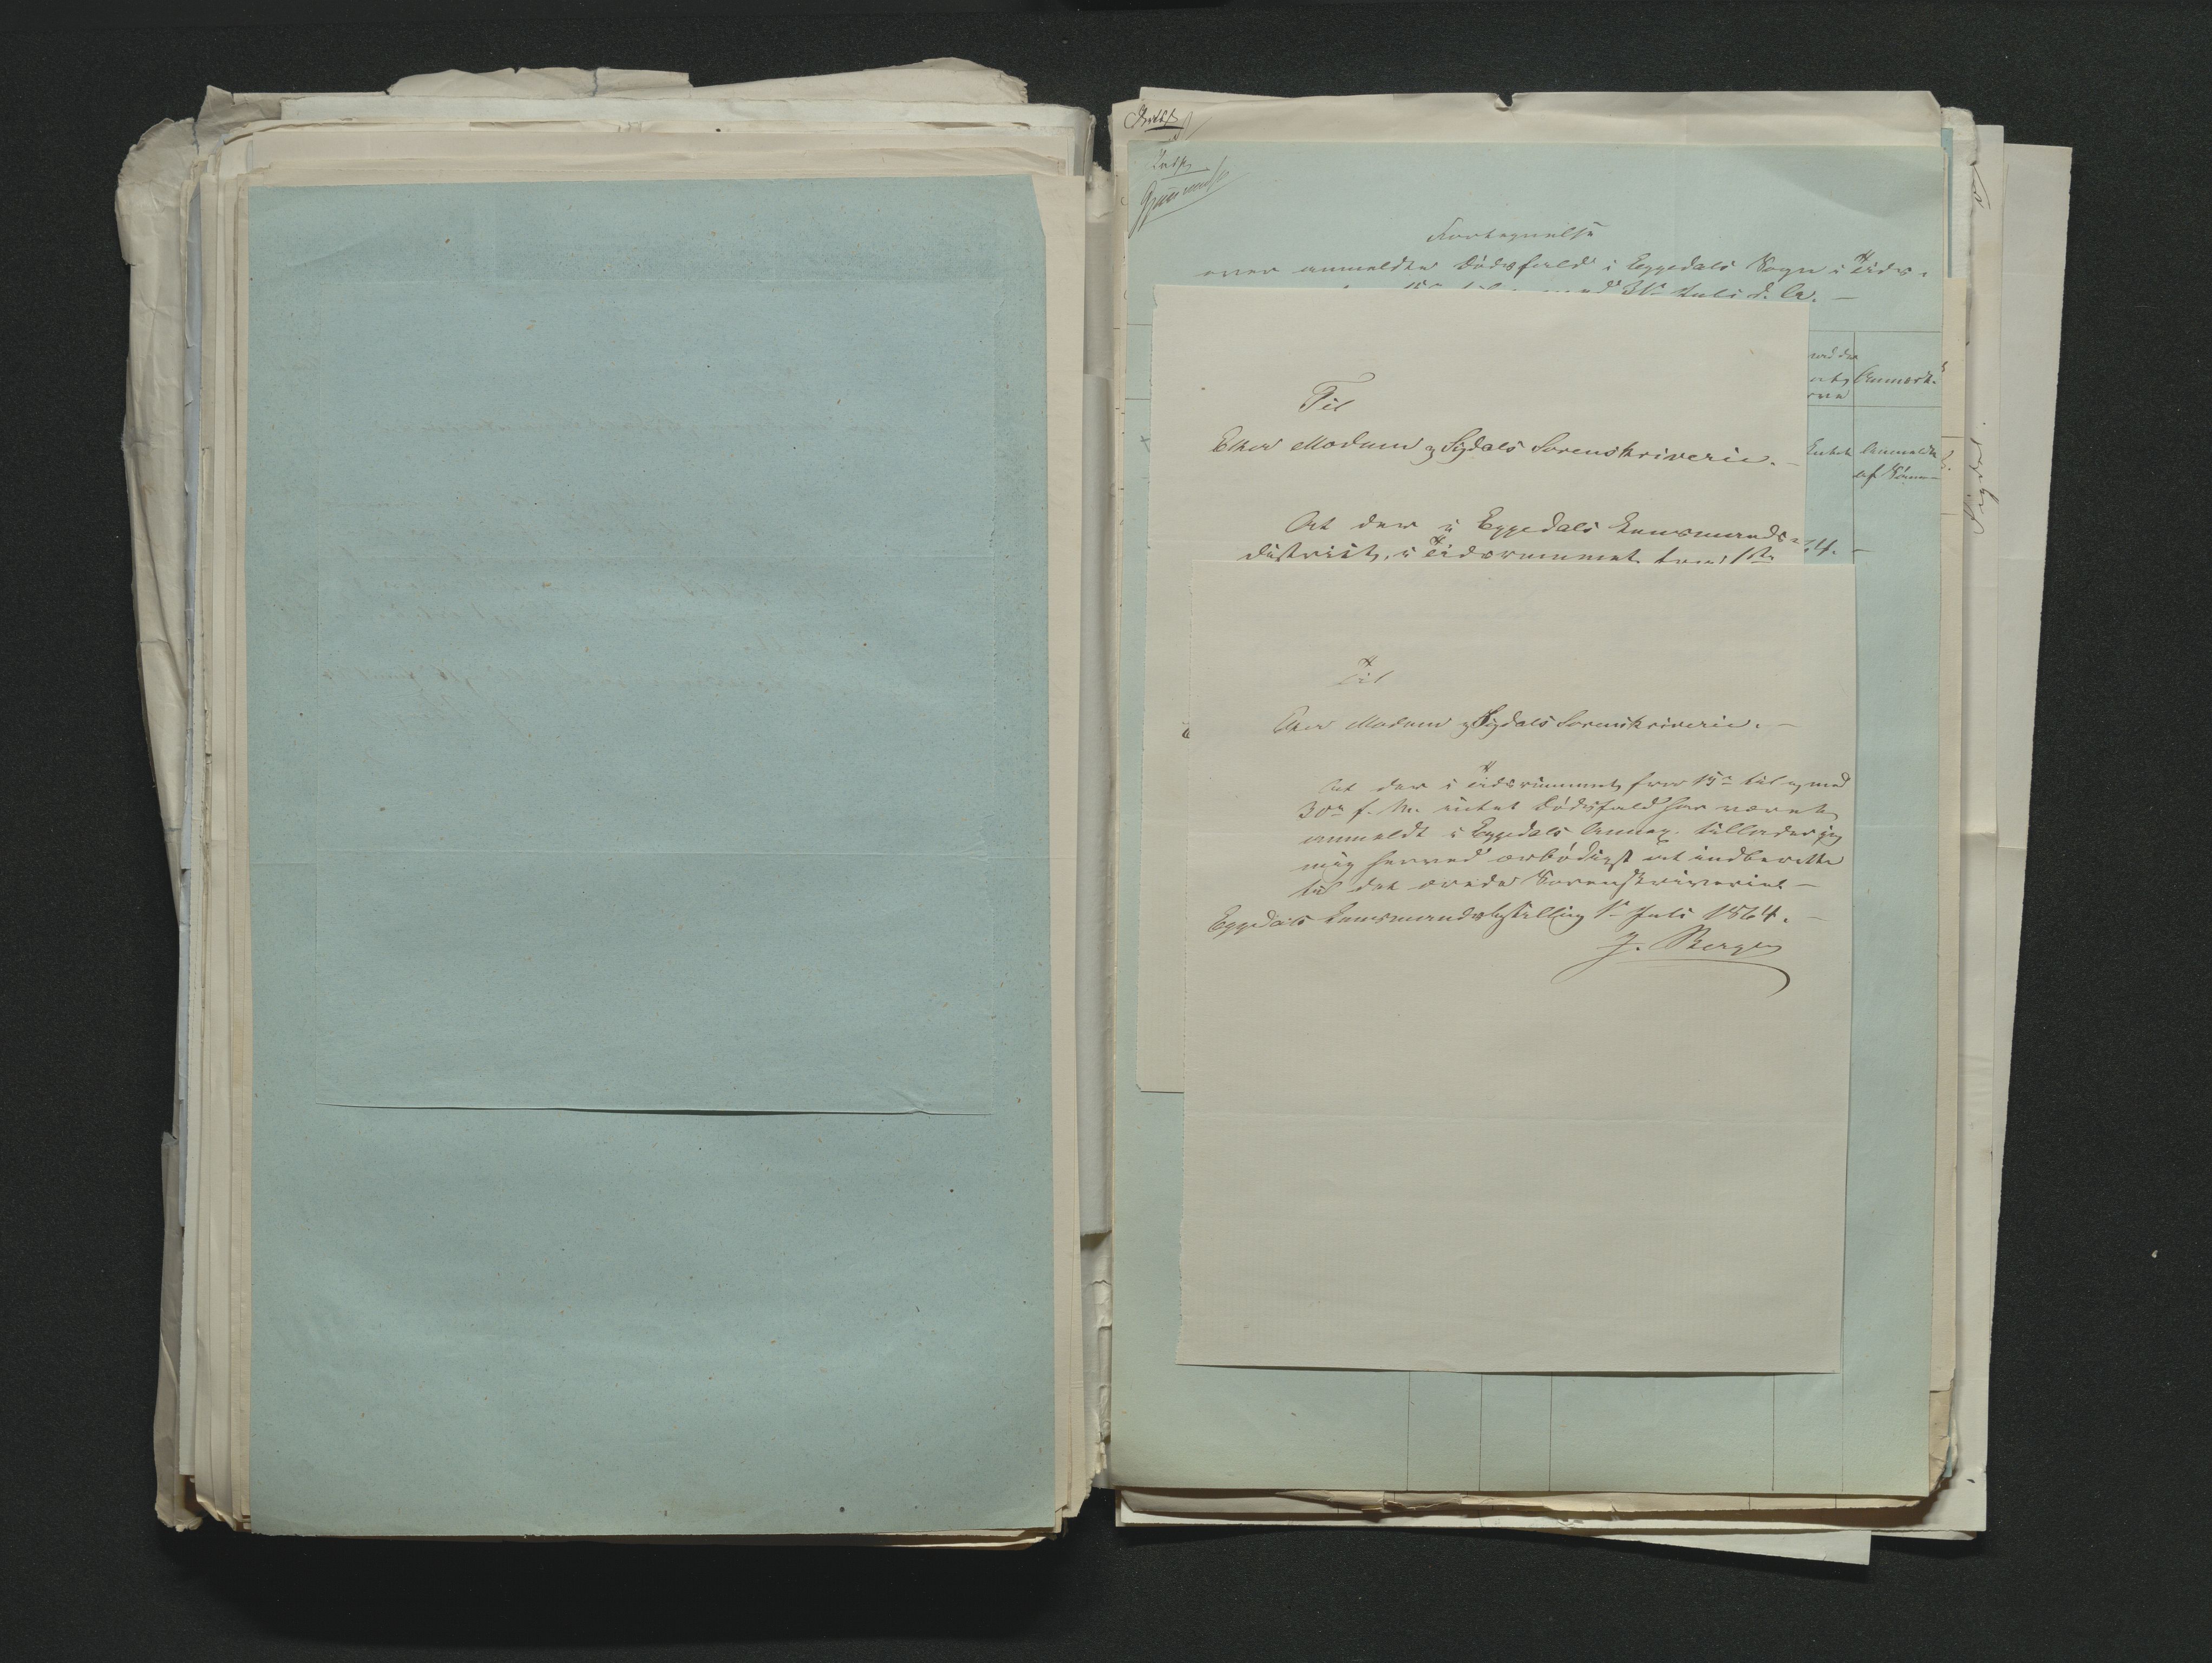 Indf.
Fortegnelse
over anmeldte Dødsfald i Eggedals Sogn i Tids-
31te Juli d. A. —
Anmærk.
Intet Anmeldt
af
Til
Eker Modum og Sigdals Sorenskriverie. —
At der i Eggedals Lensmands-
district, i Tidsrummet fra 1ste
64. —
Til
Eker Modum og Sigdals Sorenskriverie. —
At der i Tidsrummet fra 15de til og med
30te f. M. intet Dødsfald har været
anmeldt i Eggedals Annex, tillader jeg
mig herved ærbødigst at indberette
til det ærede Sorenskriverie —
Eggedals Lensmandsbestilling 1ste Juli 1864. —
J. Bergen